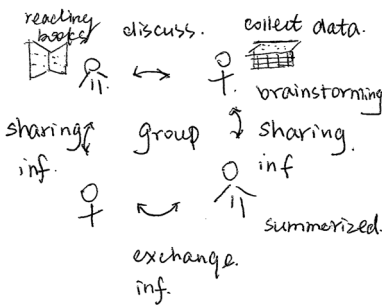 reading
books
discuss.
collect data.
brainstorming
sharing
inf.
group
sharing.
inf
summerized.
exchange.
inf.